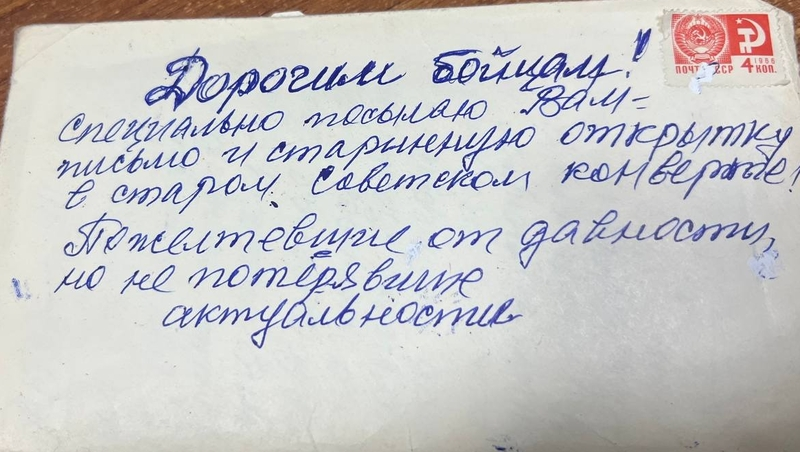 Дорогим бойцам!
специально посылаю Вам-
письмо и старинную открытку
в старом советском конверте!
Пожелтевшие от давности,
но не потерявшие
актуальности
ПОЧТА СССР 4 КОП.
1966